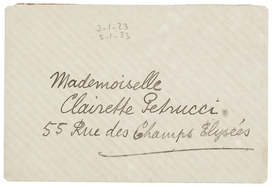 5-1-23
5-1-23
Mademoiselle
Clairette Petrucci.
55 Rue des Champs Elysées